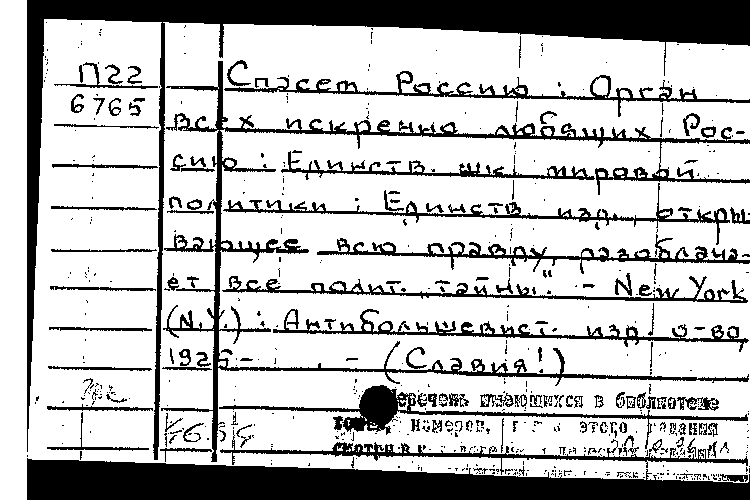 П22 Спасет Россию : Орган
6765 всех искренно любящих Рос-
сию : Единств. шк. мировой
политики : Единств. изд., откры-
вающее всю правду, разоблача-
ет все полит. „тайны". - New York
(N.Y.) : Антибольшевист. изд. о-во,
1925- . - (Славия!)
перечень имеющихся в библиотеке
томов, номеров, этого издания
смотри в